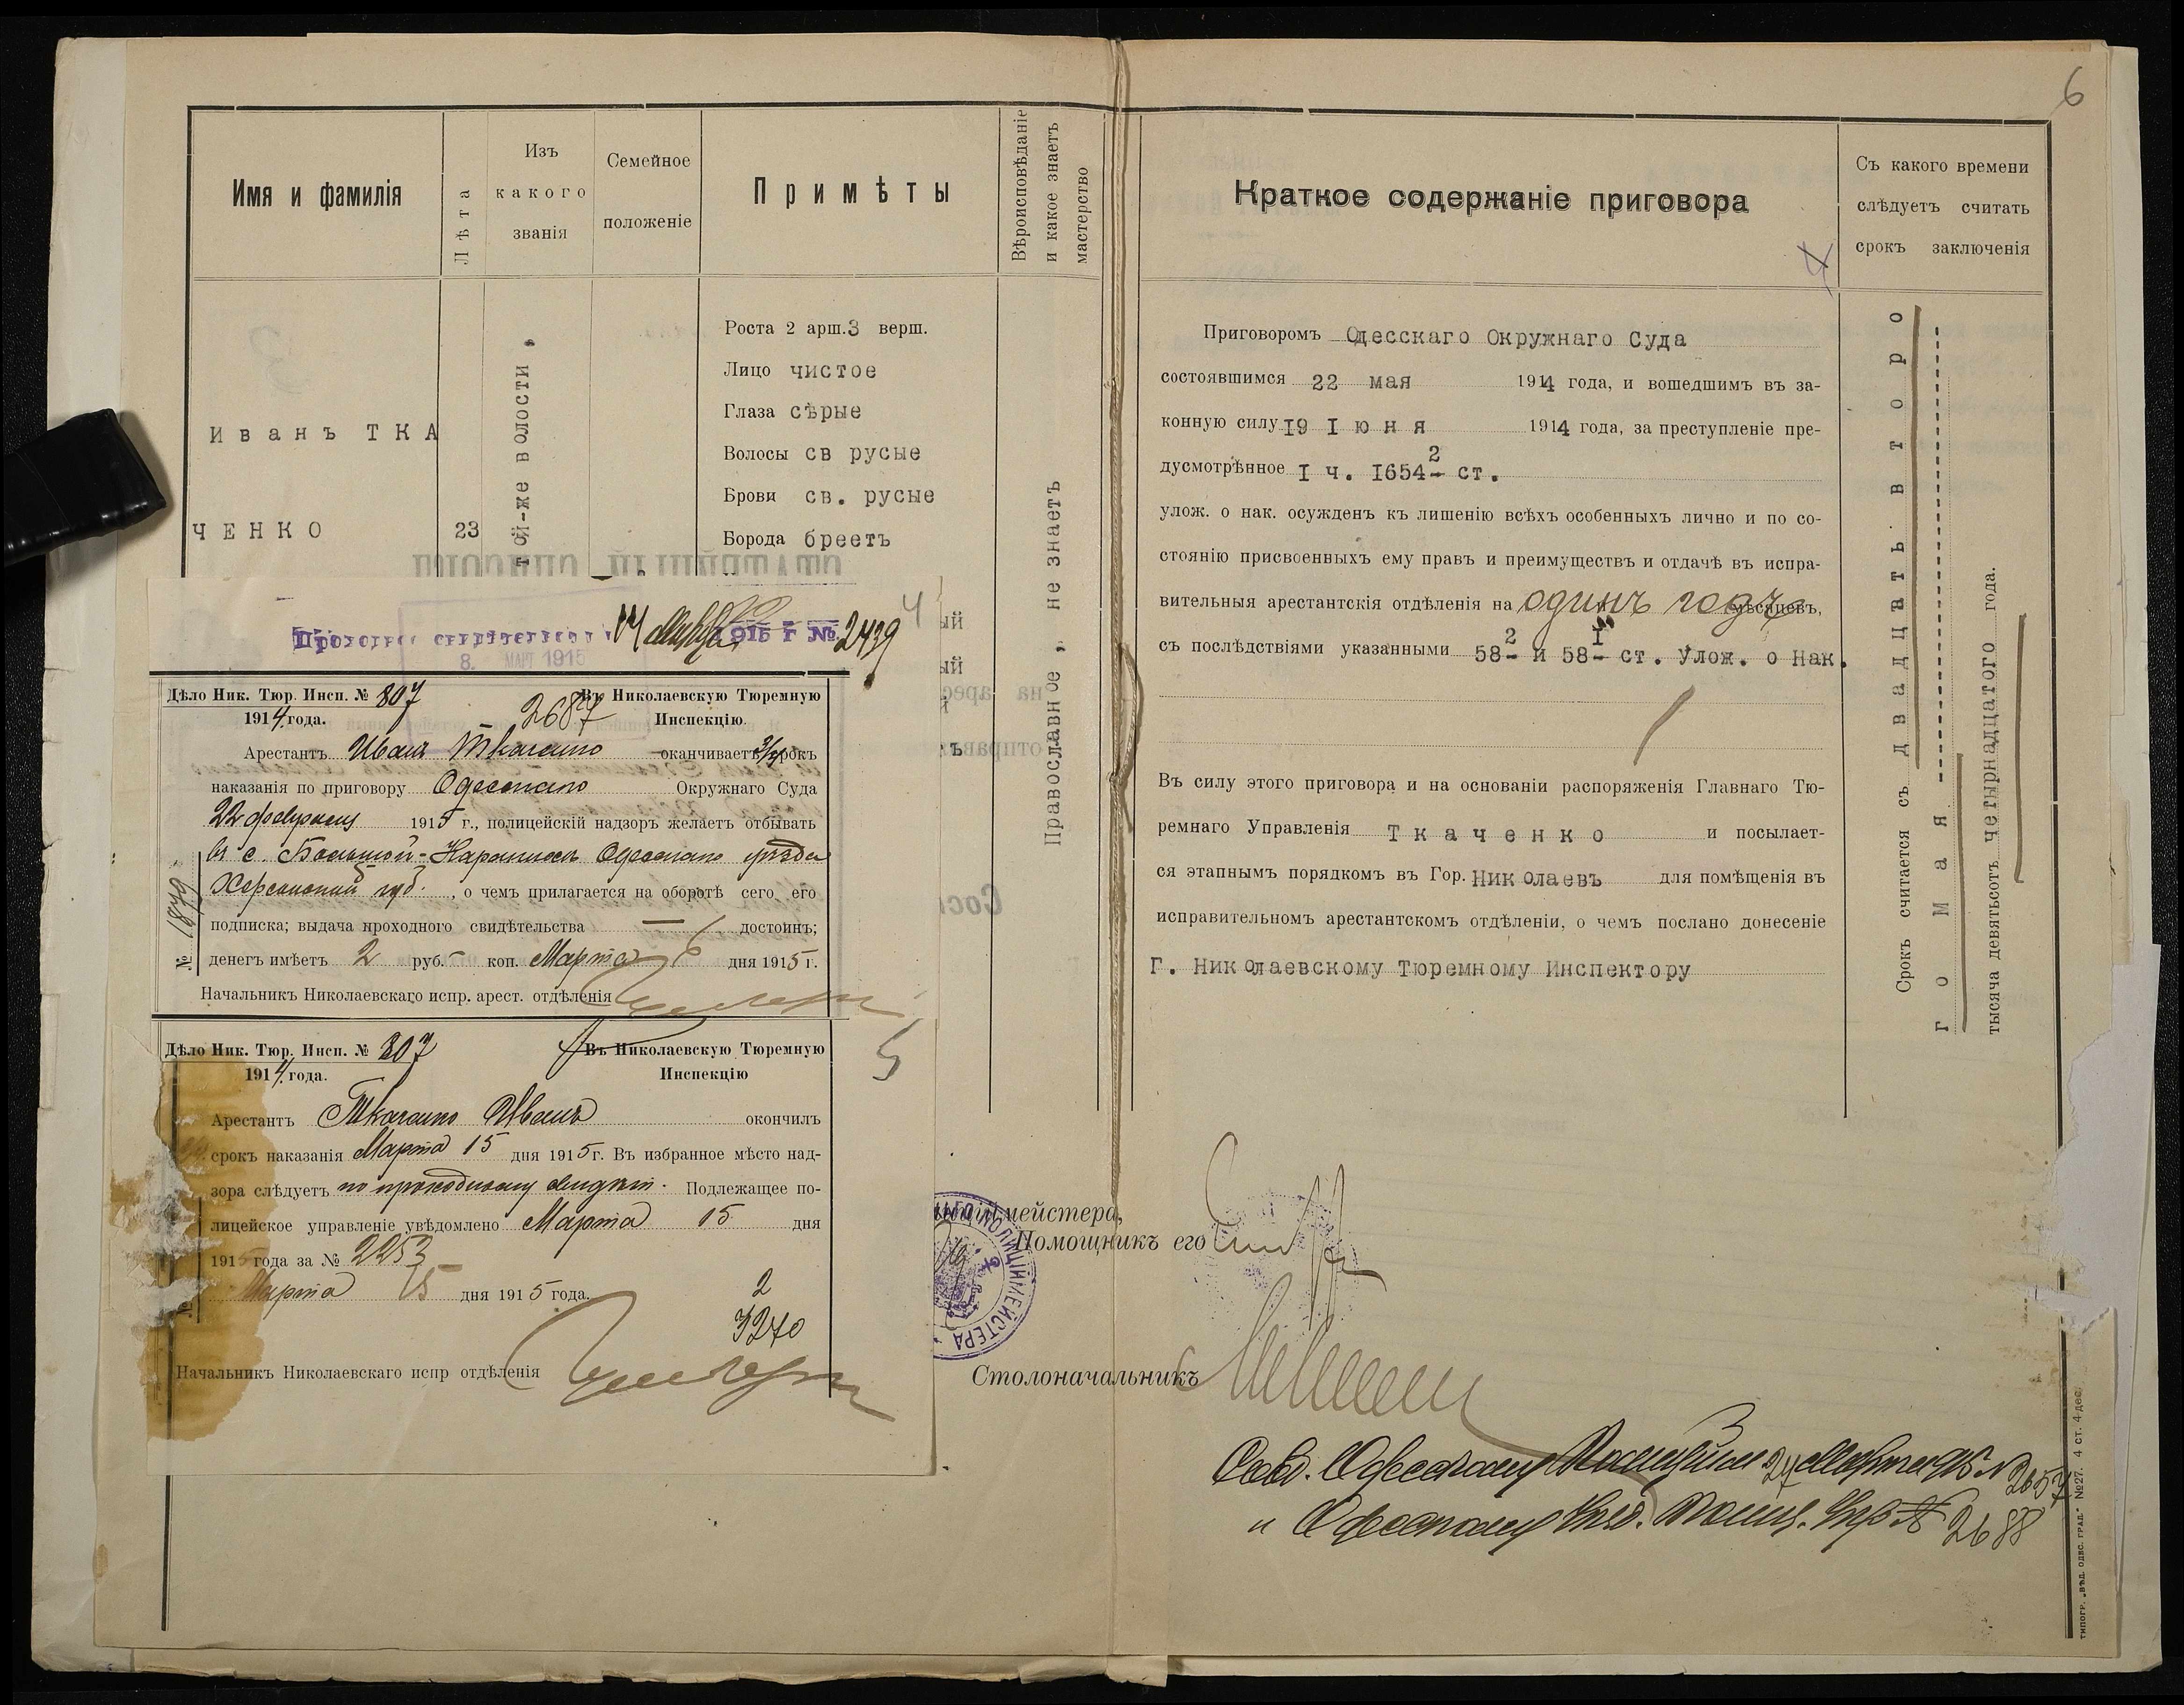 6
Имя и фамилія
Лѣта
Изъ
какого
званія
Семейное
положеніе
Примѣты
Вѣроисповѣданіе
и какое знаетъ
мастерство
Иванъ ТКА
ЧЕНКО
23
той-же волости
Роста 2 арш. 3 верш.
Лицо чистое
Глаза сѣрые
Волосы св русые
Брови св. русые
Борода бреетъ
Православное, не знаетъ
4
14 1915 г № 2439
8. МАРТ 1915
Дѣло Ник. Тюр. Инсп. № 807
1914 года.
2687
Въ Николаевскую Тюремную
Инспекцію.
Арестантъ Иванъ Ткаченко оканчиваетъ срокъ
наказанія по приговору Одесскаго Окружнаго Суда
22 февраля 1915 г., полицейскій надзоръ желаетъ отбывать
въ с. Большой- Одесскаго уѣзда
Херсонской губ., о чемъ прилагается на оборотѣ сего его
подписка; выдача проходного свидѣтельства — достоинъ;
денегъ имѣетъ 2 руб. - коп. Марта 6 дня 1915 г.
Начальникъ Николаевскаго испр. арест. отдѣленія
№ 1879
5
Дѣло Ник. Тюр. Инсп. № 807
1914 года.
Въ Николаевскую Тюремную
Инспекцію
Арестантъ Ткаченко Иванъ окончилъ
срокъ наказанія Марта 15 дня 1915 г. Въ избранное мѣсто над-
зора слѣдуетъ по проходному свидѣт. Подлежащее по-
лицейское управленіе увѣдомлено Марта 15 дня
1915 года за № 2253
Марта 15 дня 1915 года.
2
3270
Начальникъ Николаевскаго испр отдѣленія
Краткое содержаніе приговора
Приговоромъ Одесскаго Окружнаго Суда
состоявшимся 22 мая 1914 года, и вошедшимъ въ за-
конную силу 19 Iюня 1914 года, за преступленіе пре-
дусмотрѣнное I ч. I654 2 ст.
улож. о нак. осужденъ къ лишенію всѣхъ особенныхъ лично и по со-
стоянію присвоенныхъ ему правъ и преимуществъ и отдачѣ въ испра-
вительныя арестантскія отдѣленія на одинъ годъ мѣсяцевъ,
съ послѣдствіями указанными 58 2 и 58 I ст. Улож. о Нак.
Въ силу этого приговора и на основаніи распоряженія Главнаго Тю-
ремнаго Управленія Ткаченко и посылает-
ся этапнымъ порядкомъ въ Гор. Николаевъ для помѣщенія въ
исправительномъ арестантскомъ отдѣленіи, о чемъ послано донесеніе
Г. Николаевскому Тюремному Инспектору
Съ какого времени
слѣдуетъ считать
срокъ заключенія
Срокъ считается съ двадцать второ
го Мая
тысяча девятьсотъ четырнадцатого года.
мейстера,
Помощникъ его
ПОЛИЦІЙМЕЙСТЕРА
Столоначальникъ
Одесскому 24 Марта 915 № 2657
и Одесскому Полиц. Упр № 2688
типогр. „вѣд. одес. град.“ №27. 4 ст. 4 дес.